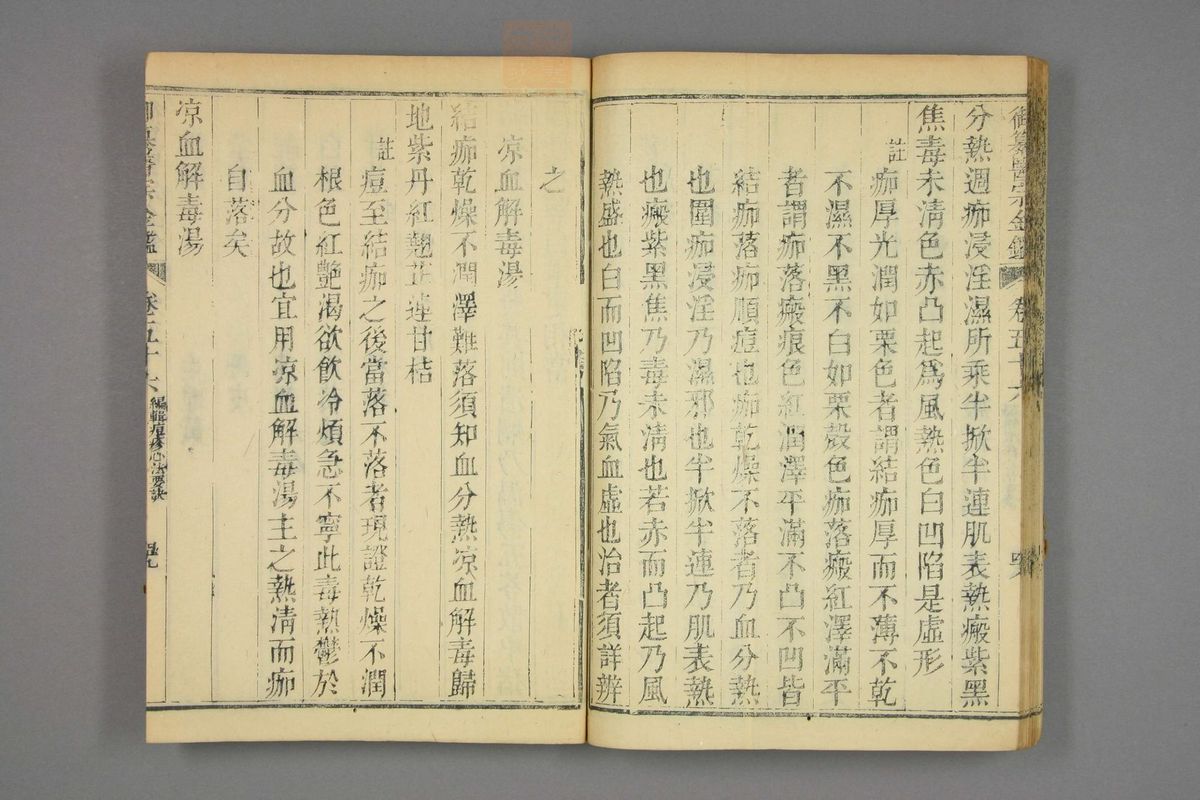 御纂醫宗金鑑 卷五十六
分熱週痂浸淫濕所乘半掀半連肌表熱瘢紫黑
焦毒未淸色赤凸起爲風熱色白凹陷是虛形
註
痂厚光潤如栗色者謂結痂厚而不薄不乾
不濕不黑不白如栗殼色痂落瘢紅澤滿平
者謂痂落瘢痕色紅潤澤平滿不凸不凹皆
結痂落痂順痘也痂乾燥不落者乃血分熱
也圍痂浸淫乃濕邪也半掀半連乃肌表熱
也瘢紫黑焦乃毒未淸也若赤而凸起乃風
熱盛也白而凹陷乃氣血虛也治者須詳辨
之
凉血解毒湯
結痂乾燥不潤澤難落須知血分熱凉血解毒歸
地紫丹紅翹芷連甘桔
註
痘至結痂之後當落不落者現證乾燥不潤
根色紅艷渴欲飮冷煩急不寧此毒熱鬱於
血分故也宜用凉血解毒湯主之熱淸而痂
自落矣
凉血解毒湯
卷五十六 編輯痘疹心法要訣